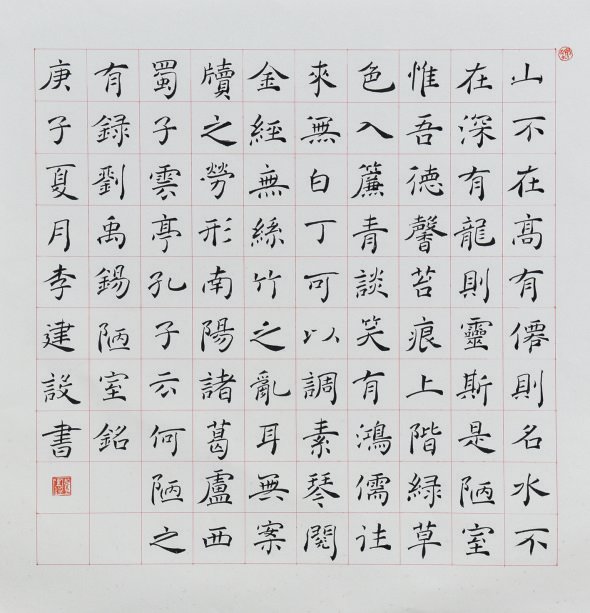 山不在高有僊則名水不
在深有龍則靈斯是陋室
惟吾德馨苔痕上階緑草
色入簾青談笑有鴻儒往
來無白丁可以調素琴閱
金經無絲竹之亂耳無案
牘之勞形南陽諸葛盧西
蜀子雲亭孔子云何陋之
有録劉禹錫陋室銘
庚子夏月李建設書